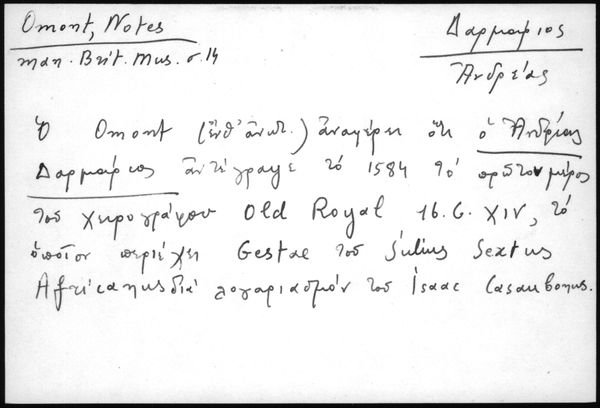 Omont, Notes
man. Brit. Mus. σ. 14
Δαρμάριος
Ἀνδρέας
Ὁ Omont (ἔνθ' ἀνωτ.) ἀναφέρει ὅτι ὁ Ἀνδρέας
Δαρμάριος ἀντέγραψε τό 1584 τό πρῶτον μέρος
τοῦ χειρογράφου Old Royal 16. C. XIV, τό
ὁποῖον περιέχει Gestae τοῦ Julius Sextus
Africanus διά λογαριασμόν τοῦ Isaac Casaubonus.